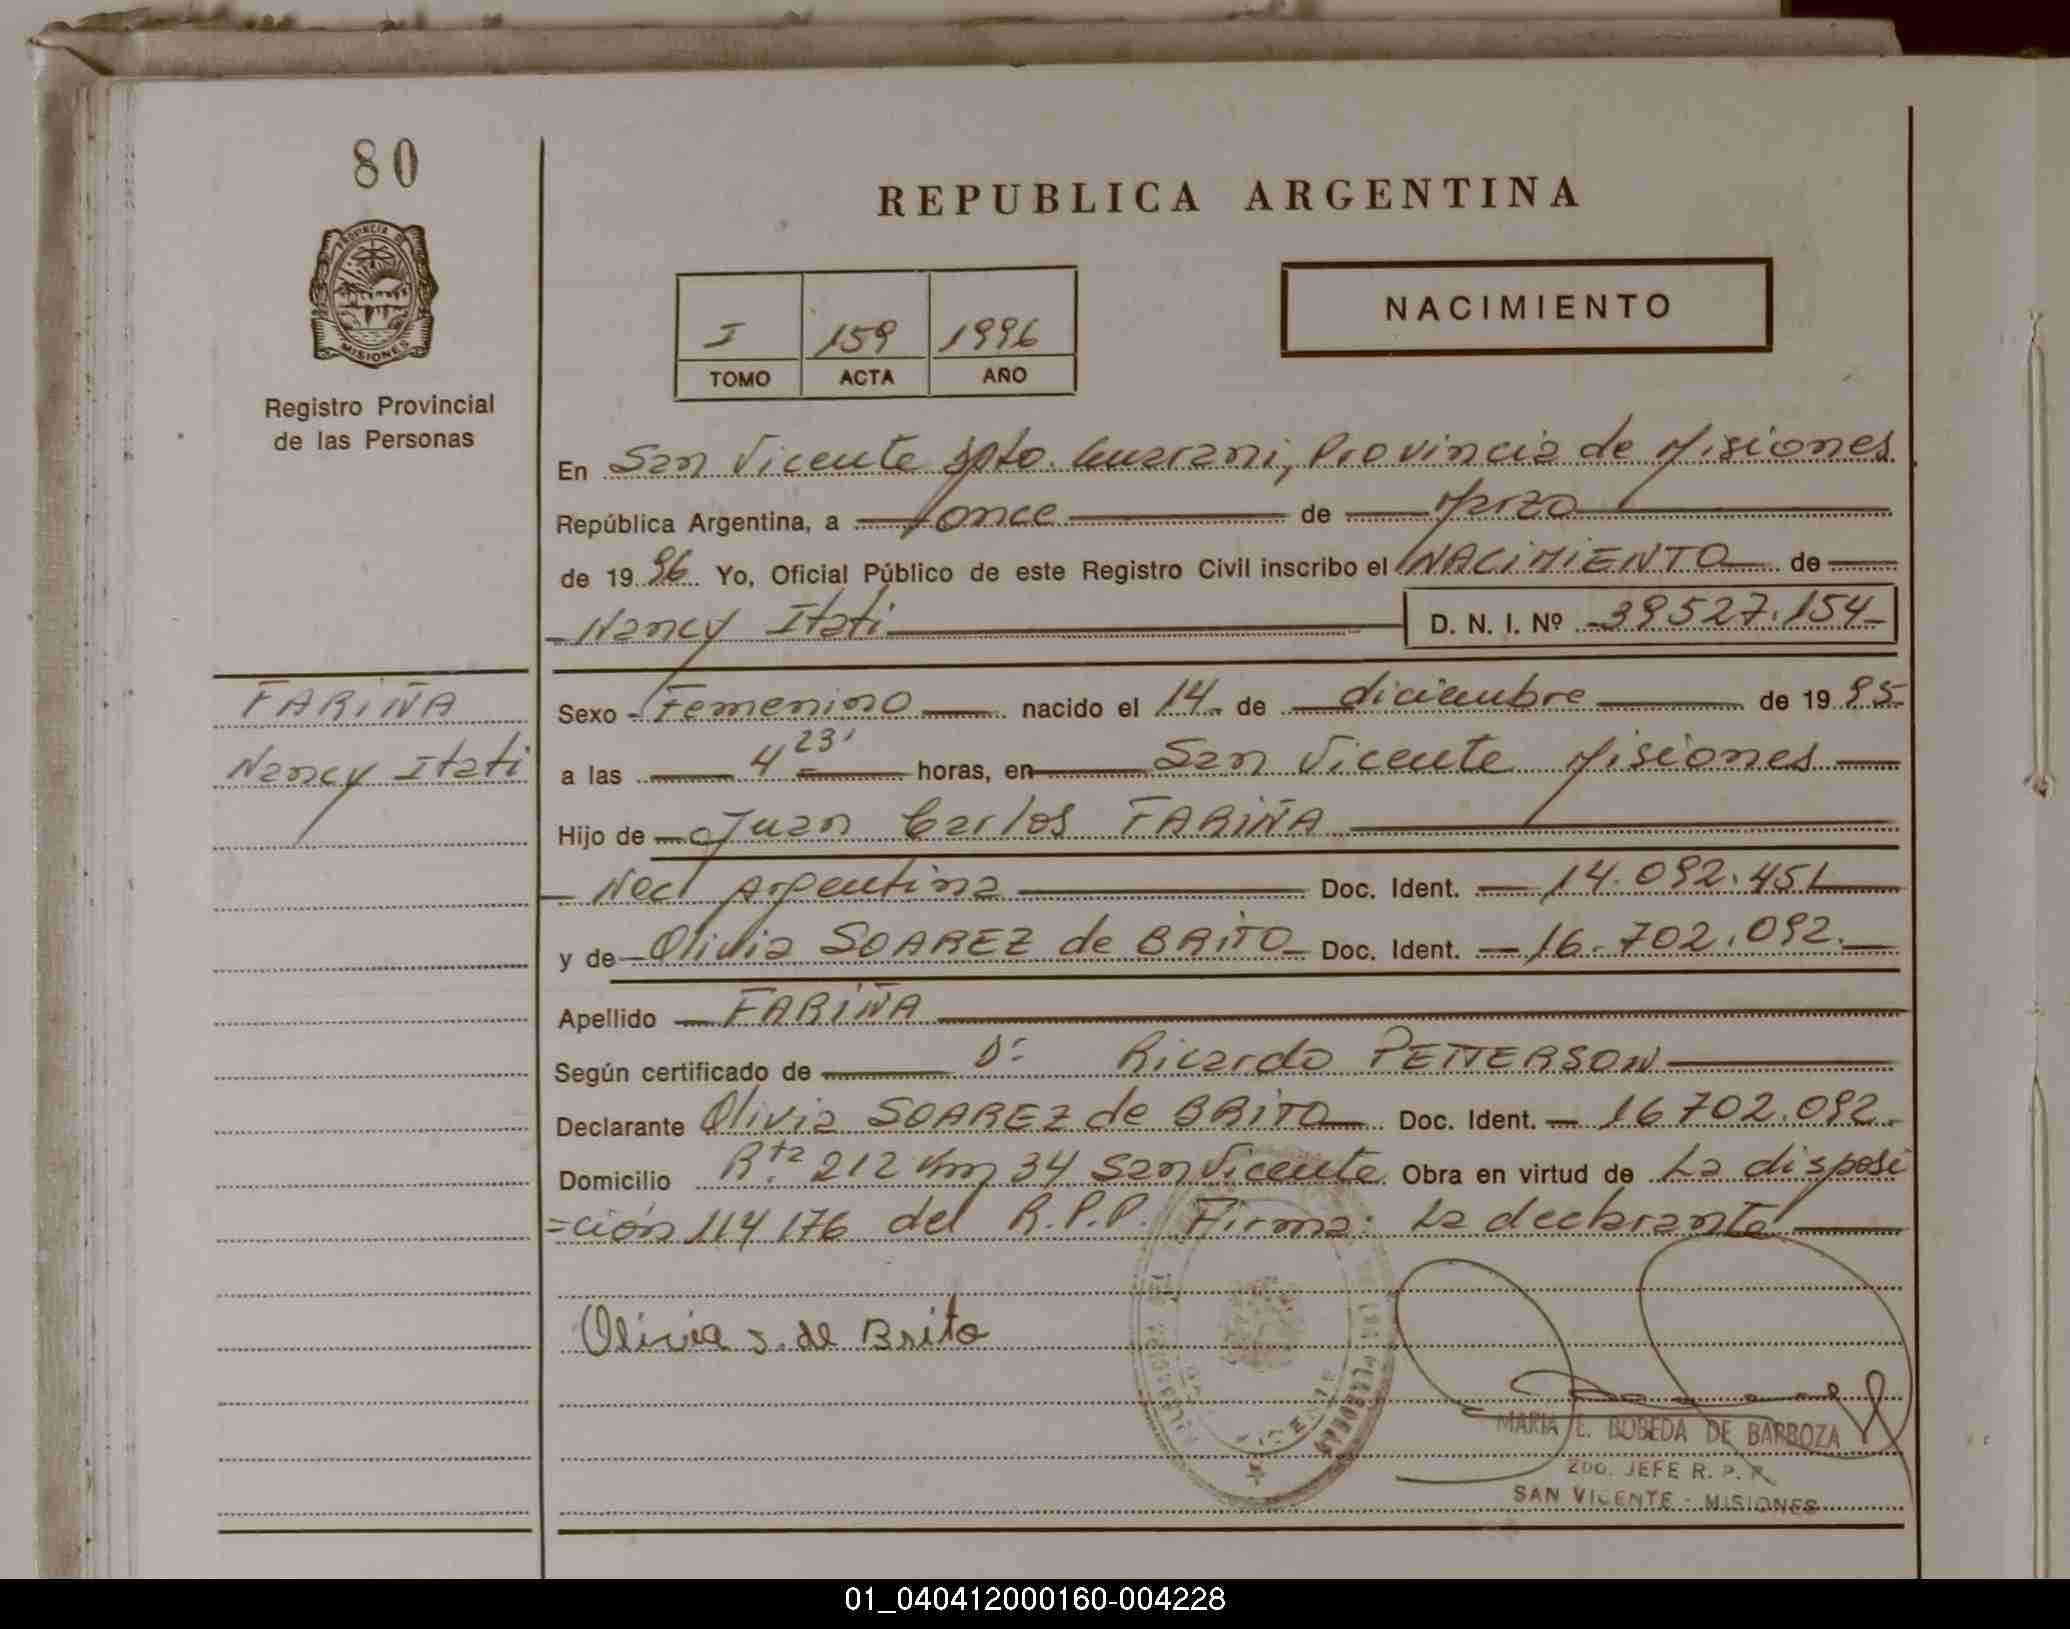 80
REPUBLICA ARGENTINA
PROVINCIA DE
MISIONES
Registro Provincial
de las Personas
I 159 1996
TOMO ACTA AÑO
NACIMIENTO
En San Vicente Dpto. Guarani, Provincia de Misiones
República Argentina, a once de Marzo
de 19 96 Yo, Oficial Público de este Registro Civil inscribo el NACIMIENTO de
Nancy Itati D. N. I. Nº 39527.154
FARIÑA
Nancy Itati
Sexo Femenino nacido el 14 de diciembre de 19 95
a las 4 23' horas, en San Vicente Misiones
Hijo de Juan Carlos FARIÑA
Nac Argentina Doc. Ident. 14.092.451
y de Olivia SOAREZ de BRITO Doc. Ident. 16.702.092.
Apellido FARIÑA
Según certificado de Dr Ricardo PETTERSON
Declarante Olivia SOAREZ de BRITO Doc. Ident. 16702.092.
Domicilio Rta. 212 Km 34 San Vicente Obra en virtud de La disposi
=ción 114 176 del R.P.P. Firma: La declarante
Olivia S. de Brito
VICENTE
MARIA E. BOBEDA DE BARBOZA
2DO. JEFE R. P. P.
SAN VICENTE - MISIONES
01_040412000160-004228